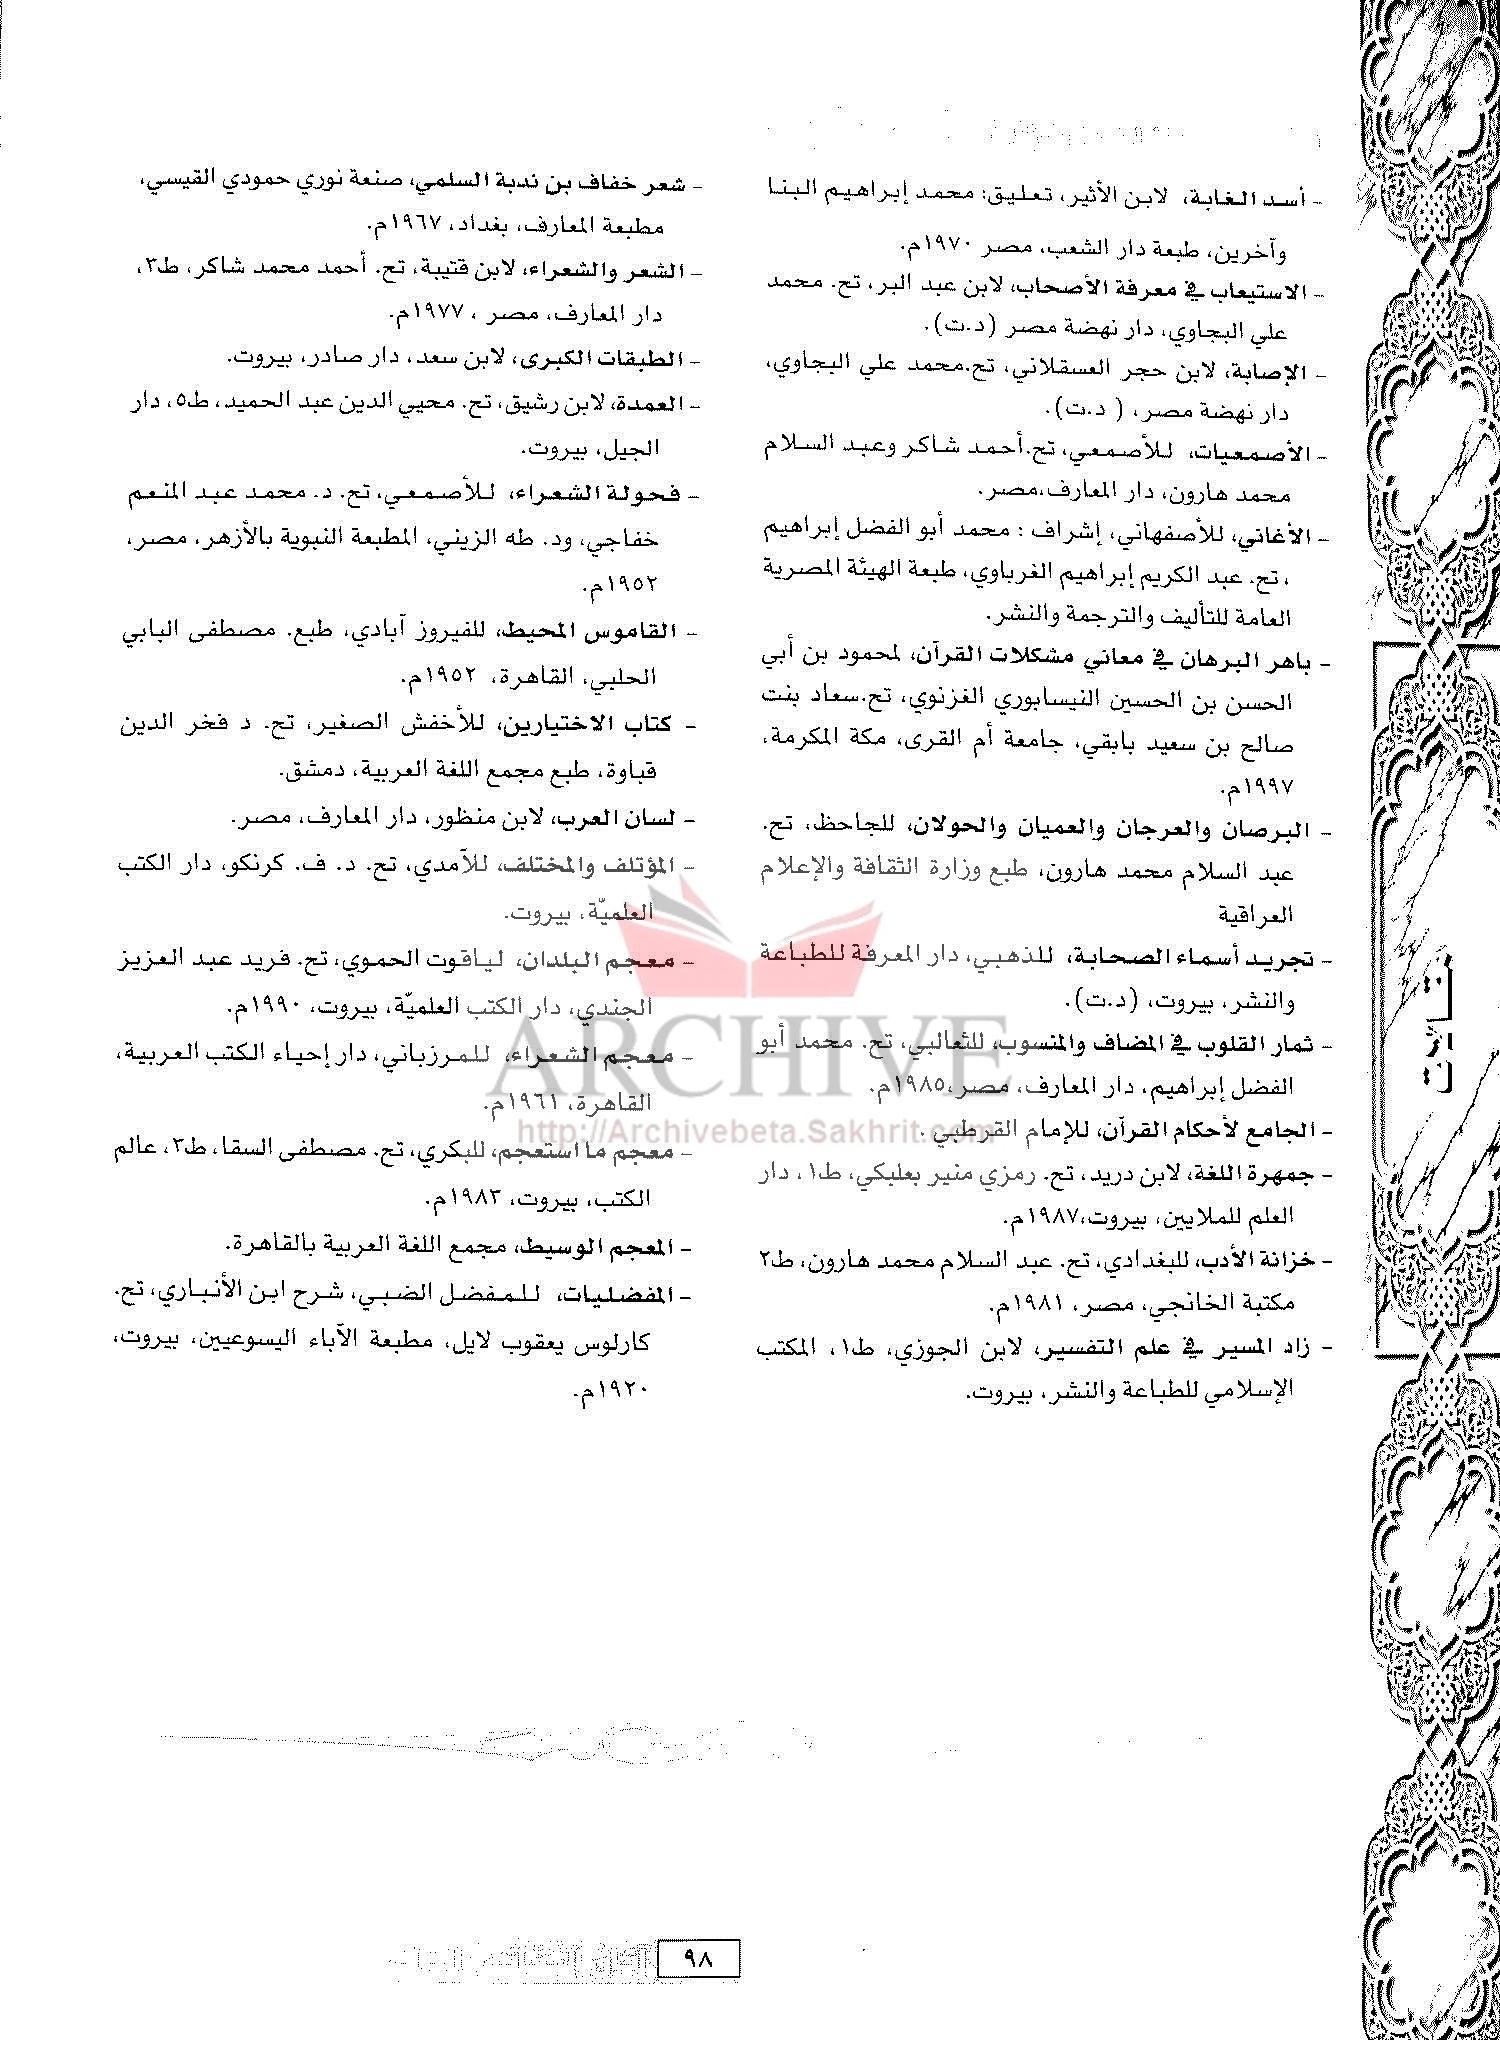 - أسد الغابة، لابن الأثير، تعليق: محمد إبراهيم البنا
وآخرين، طبعة دار الشعب، مصر ١٩٧٠م.
- الاستيعاب في معرفة الأصحاب، لابن عبد البر، تح. محمد
علي البجاوي، دار نهضة مصر (د.ت).
- الإصابة، لابن حجر العسقلاني، تح.محمد علي البجاوي،
دار نهضة مصر، ( د.ت).
- الأصمعيات، للأصمعي، تح.أحمد شاكر وعبد السلام
محمد هارون، دار المعارف،مصر.
- الأغاني، للأصفهاني، إشراف : محمد أبو الفضل إبراهيم
، تح. عبد الكريم إبراهيم الغرباوي، طبعة الهيئة المصرية
العامة للتأليف والترجمة والنشر.
- باهر البرهان في معاني مشكلات القرآن، لمحمود بن أبي
الحسن بن الحسين النيسابوري الغزنوي، تح.سعاد بنت
صالح بن سعيد بابقي، جامعة أم القرى، مكة المكرمة،
١٩٩٧م.
- البرصان والعرجان والعميان والحولان، للجاحظ، تح.
عبد السلام محمد هارون، طبع وزارة الثقافة والإعلام
العراقية
- تجريد أسماء الصحابة، للذهبي، دار المعرفة للطباعة
والنشر، بيروت، (د.ت).
- ثمار القلوب في المضاف والمنسوب، للثعالبي، تح. محمد أبو
الفضل إبراهيم، دار المعارف، مصر،١٩٨٥م.
- الجامع لأحكام القرآن، للإمام القرطبي .
- جمهرة اللغة، لابن دريد، تح. رمزي منير بعلبكي، ط١، دار
العلم للملايين، بيروت،١٩٨٧م.
- خزانة الأدب، للبغدادي، تح. عبد السلام محمد هارون، ط٢
مكتبة الخانجي، مصر، ١٩٨١م.
- زاد المسير في علم التفسير، لابن الجوزي، ط١، المكتب
الإسلامي للطباعة والنشر، بيروت.
- شعر خفاف بن ندبة السلمي، صنعة نوري حمودي القيسي،
مطبعة المعارف، بغداد، ١٩٦٧م.
- الشعر والشعراء، لابن قتيبة، تح. أحمد محمد شاكر، ط٣،
دار المعارف، مصر ، ١٩٧٧م.
- الطبقات الكبرى، لابن سعد، دار صادر، بيروت.
- العمدة، لابن رشيق، تح. محيي الدين عبد الحميد، ط٥، دار
الجيل، بيروت.
- فحولة الشعراء، للأصمعي، تح. د. محمد عبد المنعم
خفاجي، ود. طه الزيني، المطبعة النبوية بالأزهر، مصر،
١٩٥٢م.
- القاموس المحيط، للفيروز آبادي، طبع. مصطفى البابي
الحلبي، القاهرة، ١٩٥٢م.
- كتاب الاختيارين، للأخفش الصغير، تح. د فخر الدين
قباوة، طبع مجمع اللغة العربية، دمشق.
- لسان العرب، لابن منظور، دار المعارف، مصر.
- المؤتلف والمختلف، للآمدي، تح. د. ف. كرنكو، دار الكتب
العلميّة، بيروت.
- معجم البلدان، لياقوت الحموي، تح. فريد عبد العزيز
الجندي، دار الكتب العلميّة، بيروت، ١٩٩٠م.
- معجم الشعراء، للمرزباني، دار إحياء الكتب العربية،
القاهرة، ١٩٦١م.
- معجم ما استعجم، للبكري، تح. مصطفى السقا، ط٣، عالم
الكتب، بيروت، ١٩٨٣م.
- المعجم الوسيط، مجمع اللغة العربية بالقاهرة.
- المفضليات، للمفضل الضبي، شرح ابن الأنباري، تح.
كارلوس يعقوب لايل، مطبعة الآباء اليسوعيين، بيروت،
١٩٢٠م.
ARCHIVE
http://Archivebeta.Sakhrit.com
مقالات
٩٨